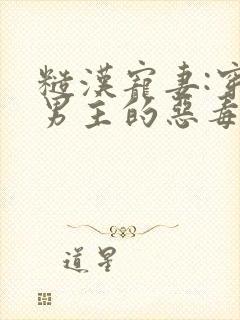 糙漢寵妻:穿
男主的惡毒
道星